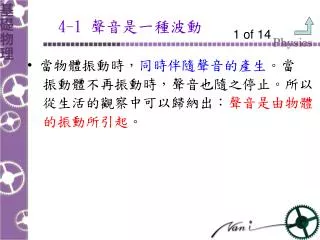 基礎物理
4-1 聲音是一種波動
1 of 14
Physics
• 當物體振動時，同時伴隨聲音的產生。當
振動體不再振動時，聲音也隨之停止。所以
從生活的觀察中可以歸納出：聲音是由物體
的振動所引起。
Nani